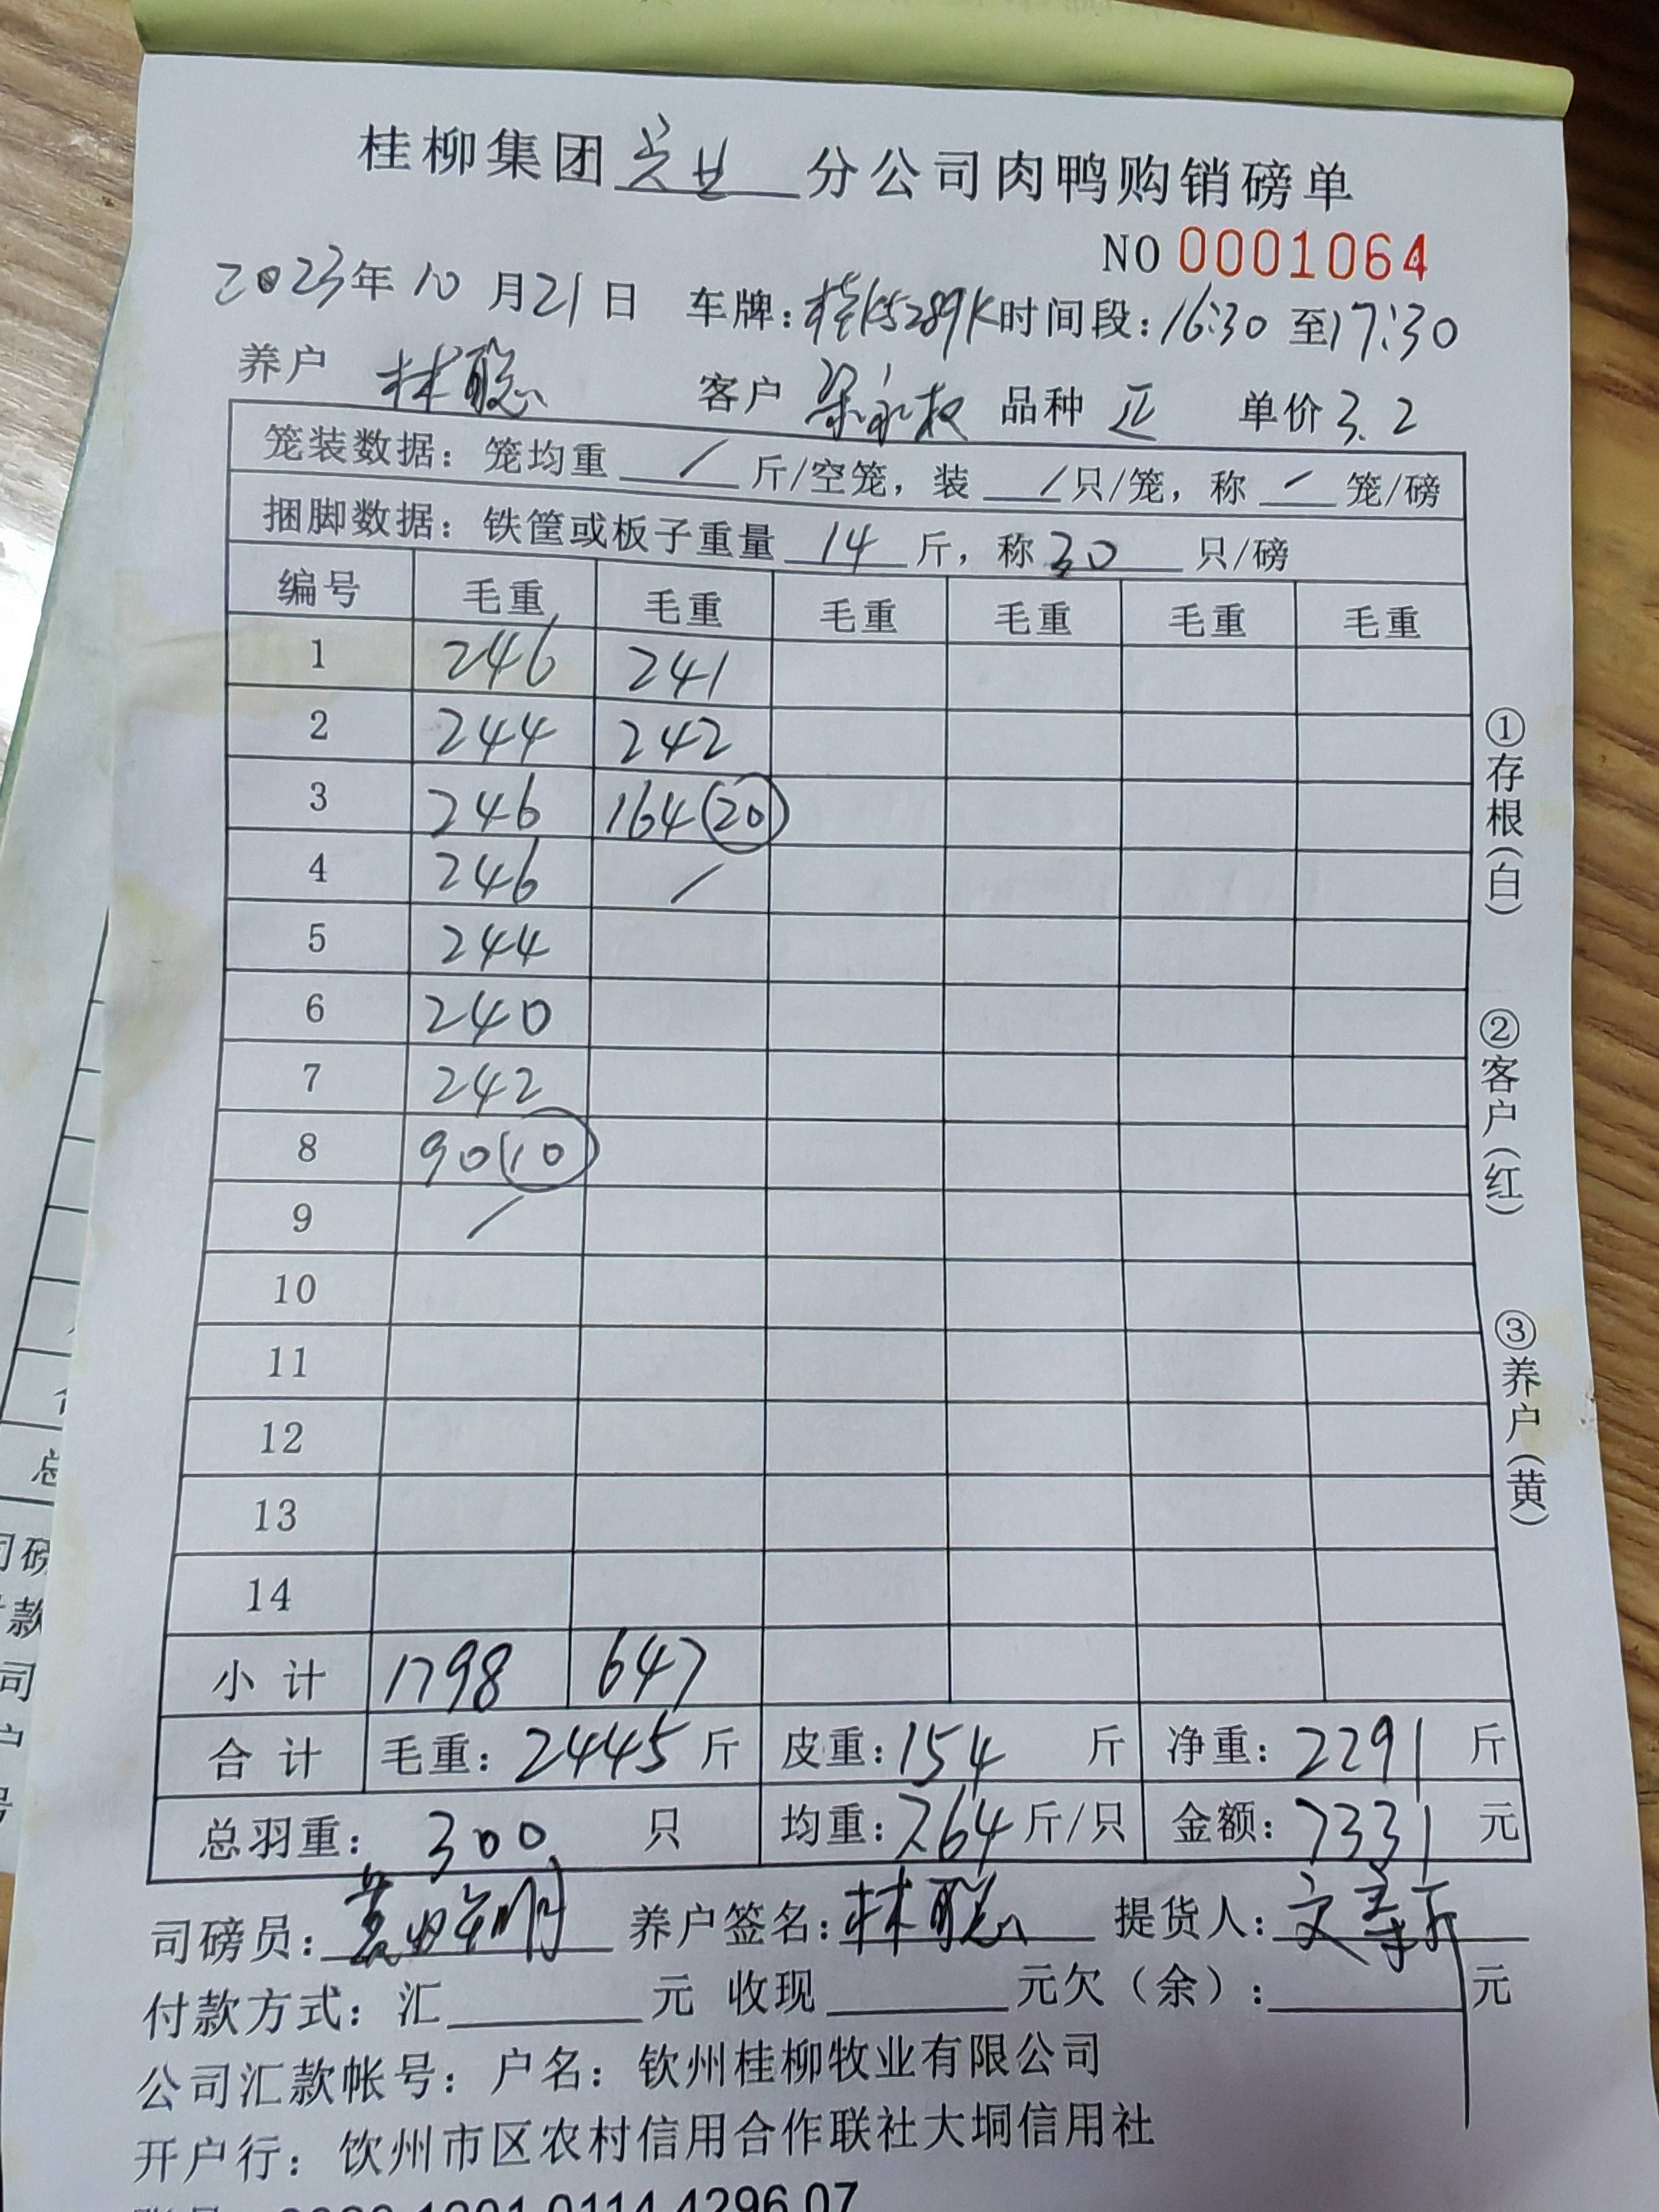 桂柳集团 分公司肉鸭购销磅单
NO 0001064
2023年10月21日 车牌:桂K5289K时间段:16:30至17:30
养户 林聪 客户 梁永权 品种 正 单价3.2
笼装数据: 笼均重 / 斤/空笼, 装 /只/笼, 称 / 笼/磅
捆脚数据: 铁筐或板子重量 14 斤, 称 30 只/磅
编号 毛重 毛重 毛重 毛重 毛重 毛重
1 246 241
2 244 242
3 246 164(20)
4 246 /
5 244
6 240
7 242
8 90(10)
9 /
10
11
12
13
14
小计 1798 647
合计 毛重: 2445 斤 皮重: 154 斤 净重: 2291 斤
总羽重: 300 只 均重: 7.64 斤/只 金额: 7331 元
司磅员: 养户签名: 林聪 提货人:
付款方式: 汇 元 收现 元欠(余): 元
公司汇款帐号: 户名: 钦州桂柳牧业有限公司
开户行: 钦州市区农村信用合作联社大垌信用社
①存根(白)
②客户(红)
③养户(黄)